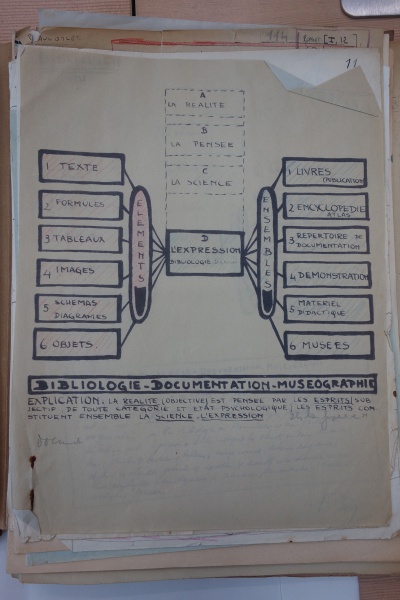 11
A
LA REALITE
B
LA PENSEE
C
LA SCIENCE
D
L'EXPRESSION
BIBLIOLOGIE
ELEMENTS
1 TEXTE
2 FORMULES
3 TABLEAUX
4 IMAGES
5 SCHEMAS
DIAGRAMES
6 OBJETS.
ENSEMBLES
1 LIVRES
PUBLICATION
2 ENCYKLOPEDIE
ATLAS
3 REPERTOIRE DE
DOCUMENTATION
4 DEMONSTRATION
5 MATERIEL
DIDACTIQUE
6 MUSEES
BIBLIOLOGIE-DOCUMENTATION-MUSEOGRAPHIE
EXPLICATION. LA REALITE (OBJECTIVE) EST PENSEE PAR LES ESPRITS (SUB
JECTIF. DE TOUTE CATEGORIE ET ETAT PSYCHOLOGIQUE) LES ESTRITS CON
STITUENT ENSEMBLE LA SCIENCE. L'EXPRESSION